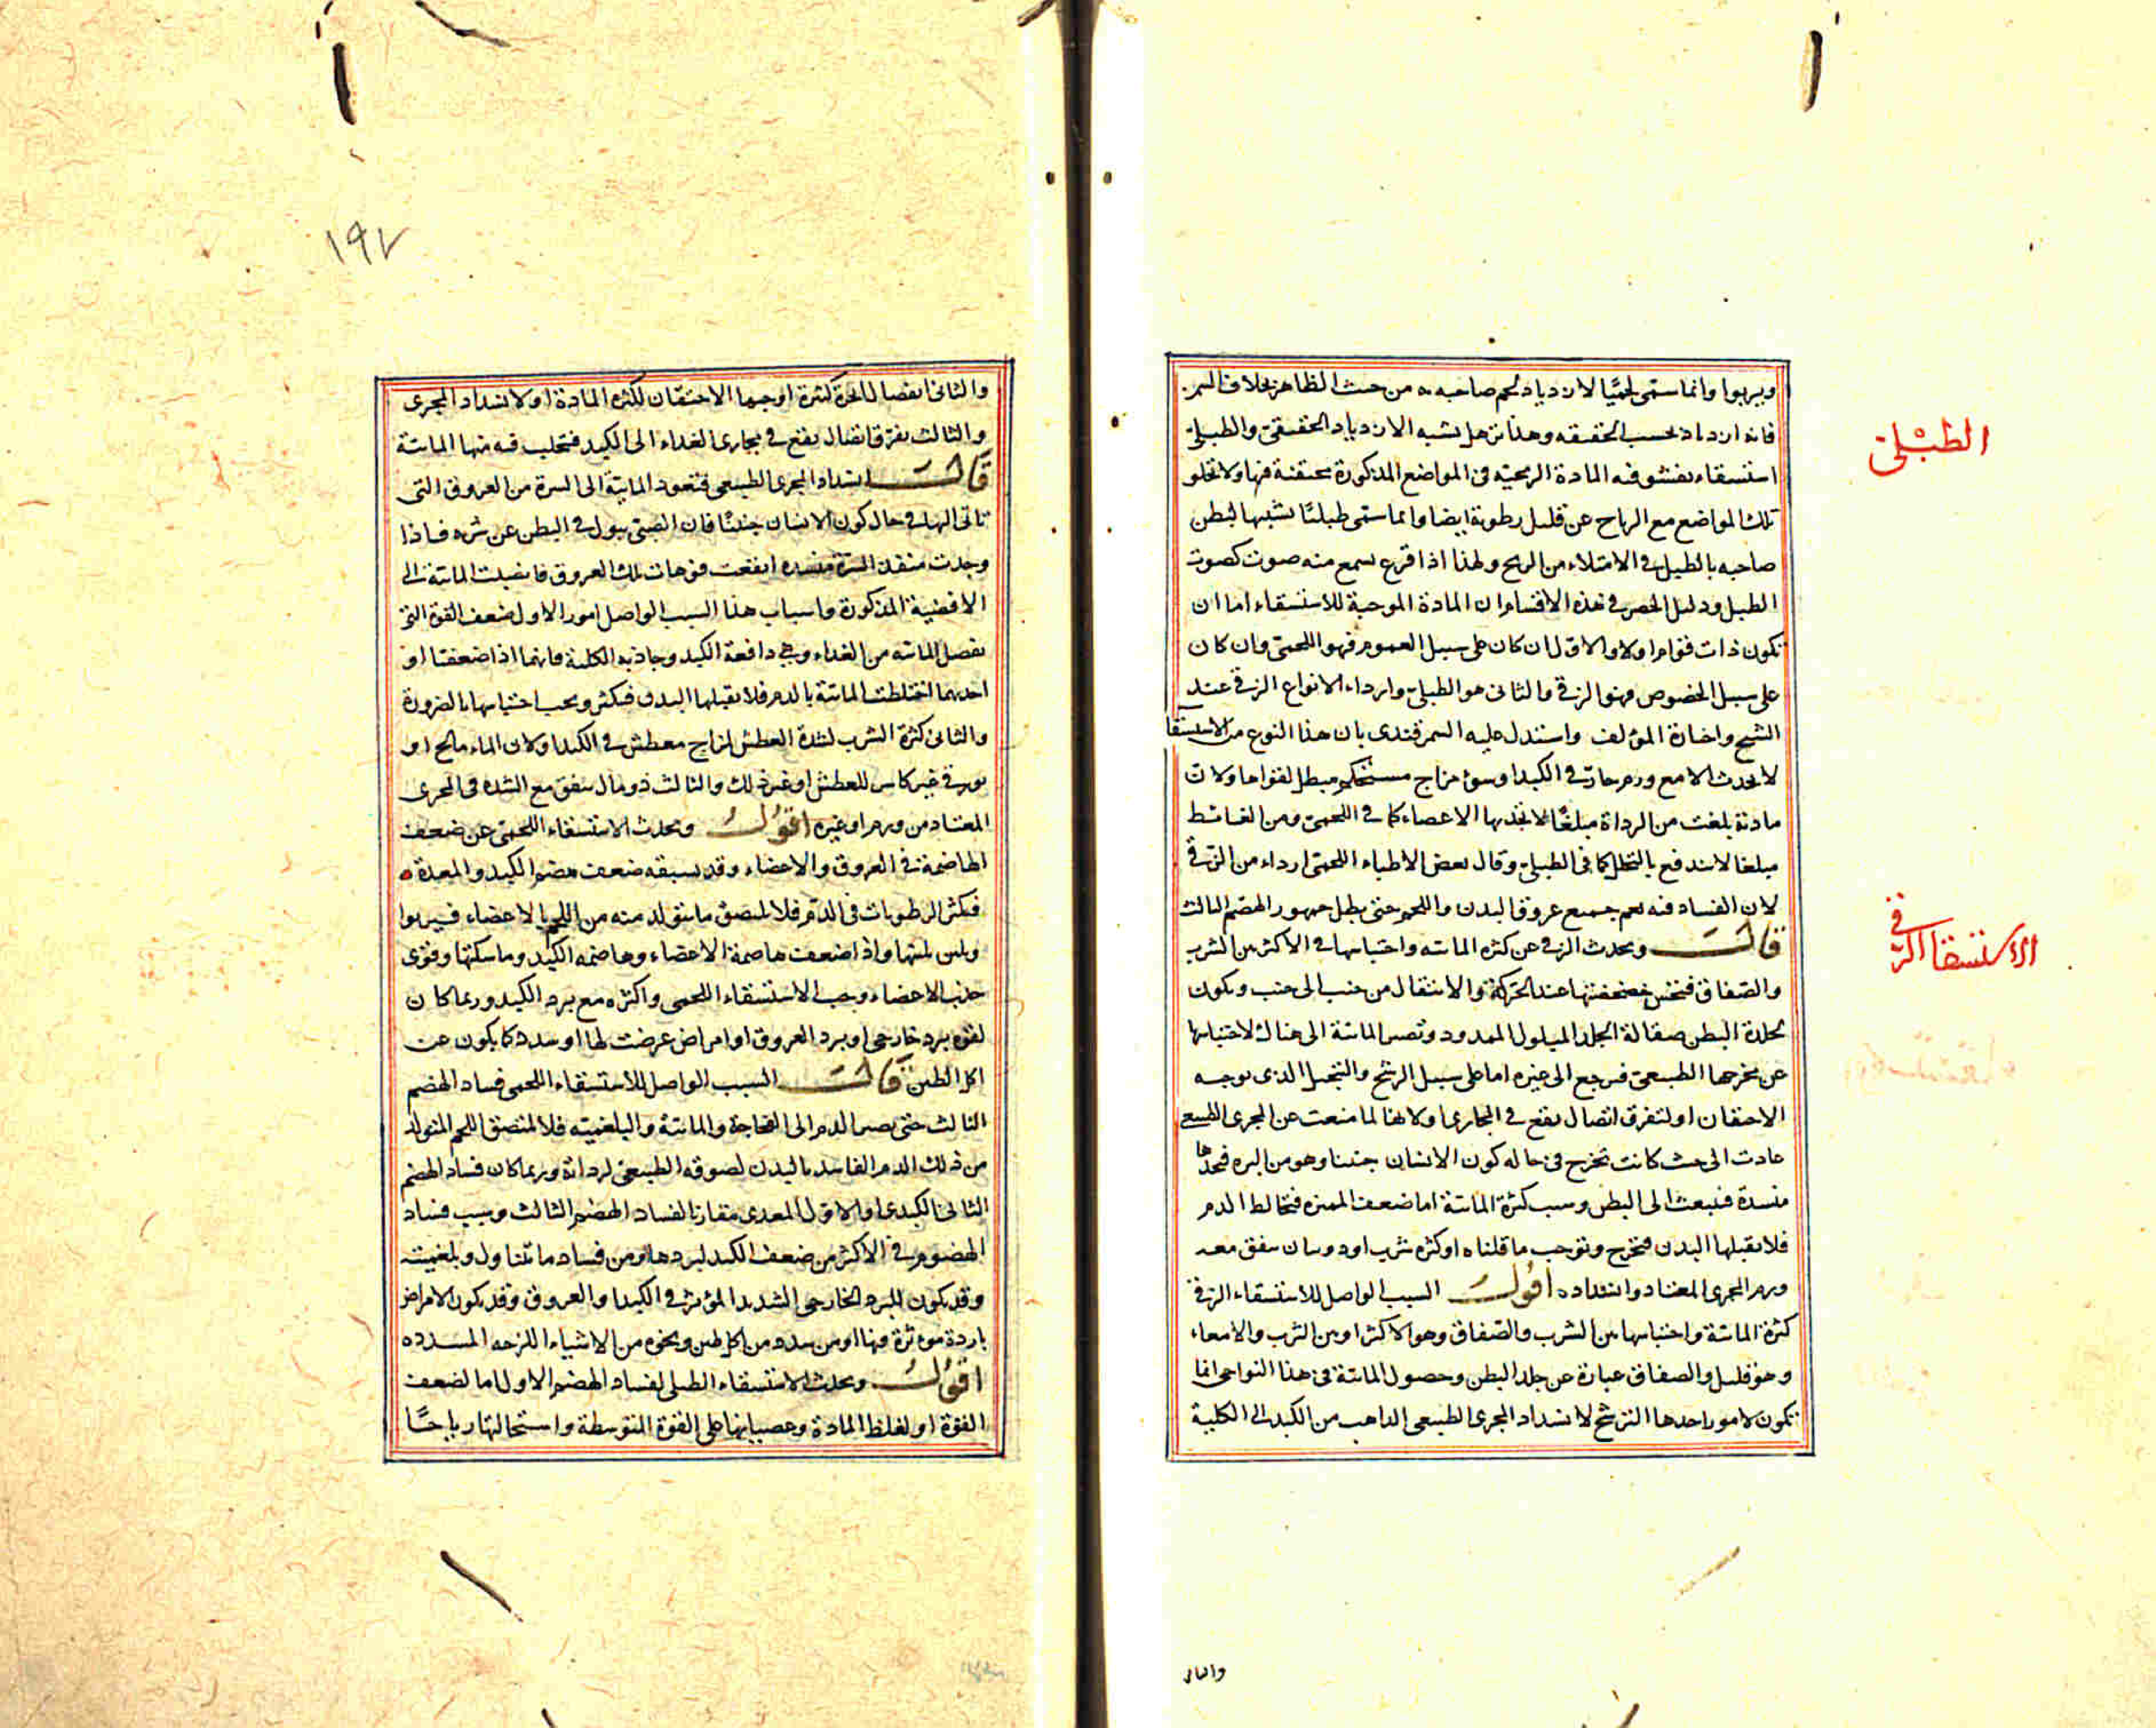 ويربوا وانما سمى لحميا لازدياد لحم صاحبه من حيث الظاهر بخلاف السمن
فانه ازدياد بحسب الحقيقه وهذا ترهل يشبه الازدياد الحقيقى والطبلى
الطبلى
استسقاء يفشو فيه المادة الريحية فى المواضع المذكورة محتقنة فيها ولا تخلو
تلك المواضع مع الرياح عن قليل رطوبة ايضا وانما سمى طبليا تشبيها لبطن
صاحبه بالطبل فى الامتلاء من الريح ولهذا اذا قرع يسمع منه صوت كصوت
الطبل ودليل الحصر فى هذه الاقسام ان المادة الموجبة للاستسقاء اما ان
تكون ذات قوام اولا والاول ان كان على سبيل العموم فهو اللحمى وان كان
على سبيل الخصوص فهو الزقى والثانى هو الطبلى وارداء الانواع الزقى عند
الشيخ واختاره المؤلف واستدل عليه السمرقندى بان هذا النوع من الاستسقا
لا يحدث الا مع ورم حار فى الكبد او سوء مزاج مستحكم مبطل لقواها ولان
مادته بلغت من الرداة مبلغا لا تجذبها الاعضاء كما فى اللحمى ومن الغلظ
مبلغا لا يندفع بالتحلل كما فى الطبلى وقال بعض الاطباء اللحمى ارداء من الزقى
لان الفساد فيه يعم جميع عروق البدن واللحم حتى يبطل جمهور الهضم الثالث
الاستسقا الزقى
قال ويحدث الزقى عن كثرة المائيه واحتباسها فى الاكثر بين الثرب
والصفاق فيحس خضخضتها عند الحركة والانتقال من جنب الى جنب ويكون
لجلدة البطن صقالة الجلد المبلول الممدود وتصير المائية الى هناك لاحتباسها
عن مخرجها الطبيعى فيرجع الى غيره اما على سبيل الرشح والتبخير الذى يوجبه
الاحتقان او لتفرق اتصال يقع فى المجارى او لانها لما منعت عن المجرى الطبيعى
عادت الى حيث كانت تخرج فى حالة كون الانسان جنينا وهو من السره فيجدها
منسدة فينبعث الى البطن وسبب كثرة المائية اما ضعف المميزه فيخالط الدم
فلا يقبلها البدن فيخرج وتوجب ما قلناه او كثرة شرب او ذوبان يتفق معه
ورم المجرى المعتاد وانسداده اقول السبب الواصل للاستسقاء الزقى
كثرة المائية واحتباسها بين الثرب والصفاق وهو الاكثر او بين الثرب والامعاء
وهو قليل والصفاق عبارة عن جلد البطن وحصول المائية فى هذا النواحى انما
تكون لامور احدها الترشح لانسداد المجرى الطبيعى الذاهب من الكبد الى الكلية
والثانى
١٩٧
والثانى انفصال ابخرة كثيرة اوجبها الاحتقان لكثرة المادة او لانسداد المجرى
والثالث تفرق اتصال يقع فى مجارى الغداء الى الكبد فتحلب فيه منها المائية
قال انسداد المجرى الطبيعى فتعود المائية الى السرة من العروق التى
تاتى اليها فى حال كون الانسان جنينا فان الصبى يبول فى البطن عن سره فاذا
وجدت منفذ السرة منسده انفتحت فوهات تلك العروق فانصبت المائية الى
الافضية المذكورة واسباب هذا السبب الواصل امور الاول ضعف القوة التى
تفصل المائيه من الغداء وهى دافعة الكبد وجاذبه الكلية فانهما اذا ضعفتا او
احديهما اختلطت المائية بالدم فلا يقبلها البدن فيكثر ويجب احتباسها بالضرورة
والثانى كثرة الشرب لشدة العطش لمزاج معطش فى الكبد او لان الماء مالح او
بورقى غير كاسر للعطش او غير ذلك والثالث ذوبان يتفق مع السده فى المجرى
المعتاد من ورم او غيره اقول ويحدث الاستسقاء اللحمى عن ضعف
الهاضمة فى العروق والاعضاء وقد يسبقه ضعف هضم الكبد والمعدة
فيكثر الرطوبات فى الدم فلا يلتصق ما يتولد منه من اللحم بالاعضاء فيربوا
ويلين بلتها واذا ضعفت هاضمة الاعضاء وهاضمه الكبد وماسكتها وقوى
جذب الاعضاء وجب الاستسقاء اللحمى واكثره مع برد الكبد وربما كان
لقوه برد خارجى او برد العروق او امراض عرضت لها او سدد كما يكون عن
اكل الطين قال السبب الواصل للاستسقاء اللحمى فساد الهضم
الثالث حتى يصير الدم الى الفجاجة والمائية والبلغمية فلا يلتصق اللحم المتولد
من ذلك الدم الفاسد بالبدن لصوقه الطبيعى لرداته وربما كان فساد الهضم
الثانى الكبدى او الاول المعدى مقارنا لفساد الهضم الثالث وسبب فساد
الهضوم فى الاكثر من ضعف الكبد لبردها ومن فساد ما يتناول وبلغميته
وقد يكون للبرد الخارجى الشديد المؤثر فى الكبد او العروق وقد يكون لامراض
باردة موثرة فيها او من سدد من اكل طين ونحوه من الاشياء اللزجه المسدده
اقول ويحدث الاستسقاء الطبلى لفساد الهضم الاول اما لضعف
القوة او لغلظ المادة وعصيانها على القوة المتوسطة واستحالتها رياحا